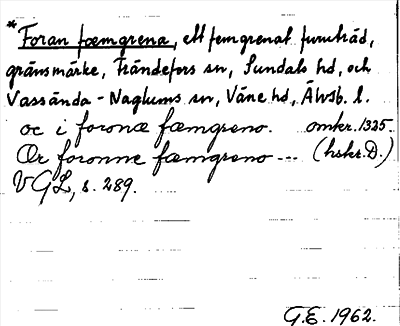 *Foran fæmgrena, ett femgrenat furuträd,
gränsmärke, Frändefors sn, Sundals hd, och
Vassända-Naglums sn, Väne hd, Älvsb. l.
oc i foronæ fæmgreno. omkr. 1325.
Or foronne fæmgreno --- (hskr. D.)
VGL, s. 289.
G.E. 1962.